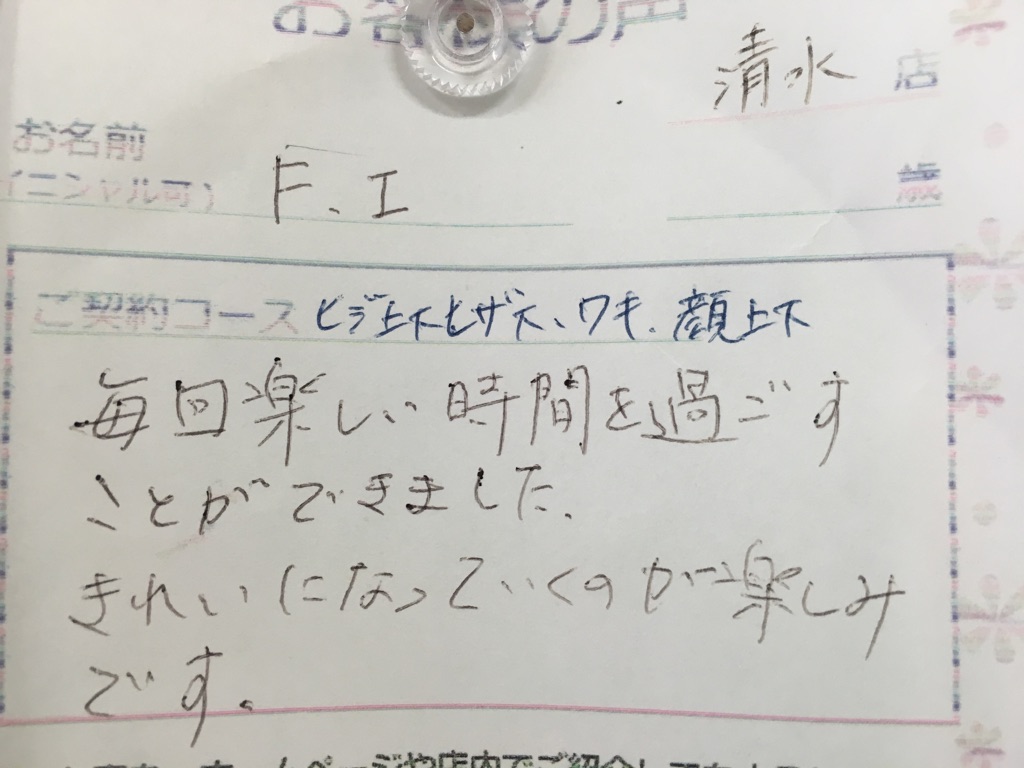 お客様の声
清水 店
お名前
イニシャル可） F.I 歳
ご契約コース ヒジ上下ヒザ下、ワキ、顔上下
毎回楽しい時間を過ごす
ことができました。
きれいになっていくのが楽しみ
です。
ホームページや店内でご紹介して